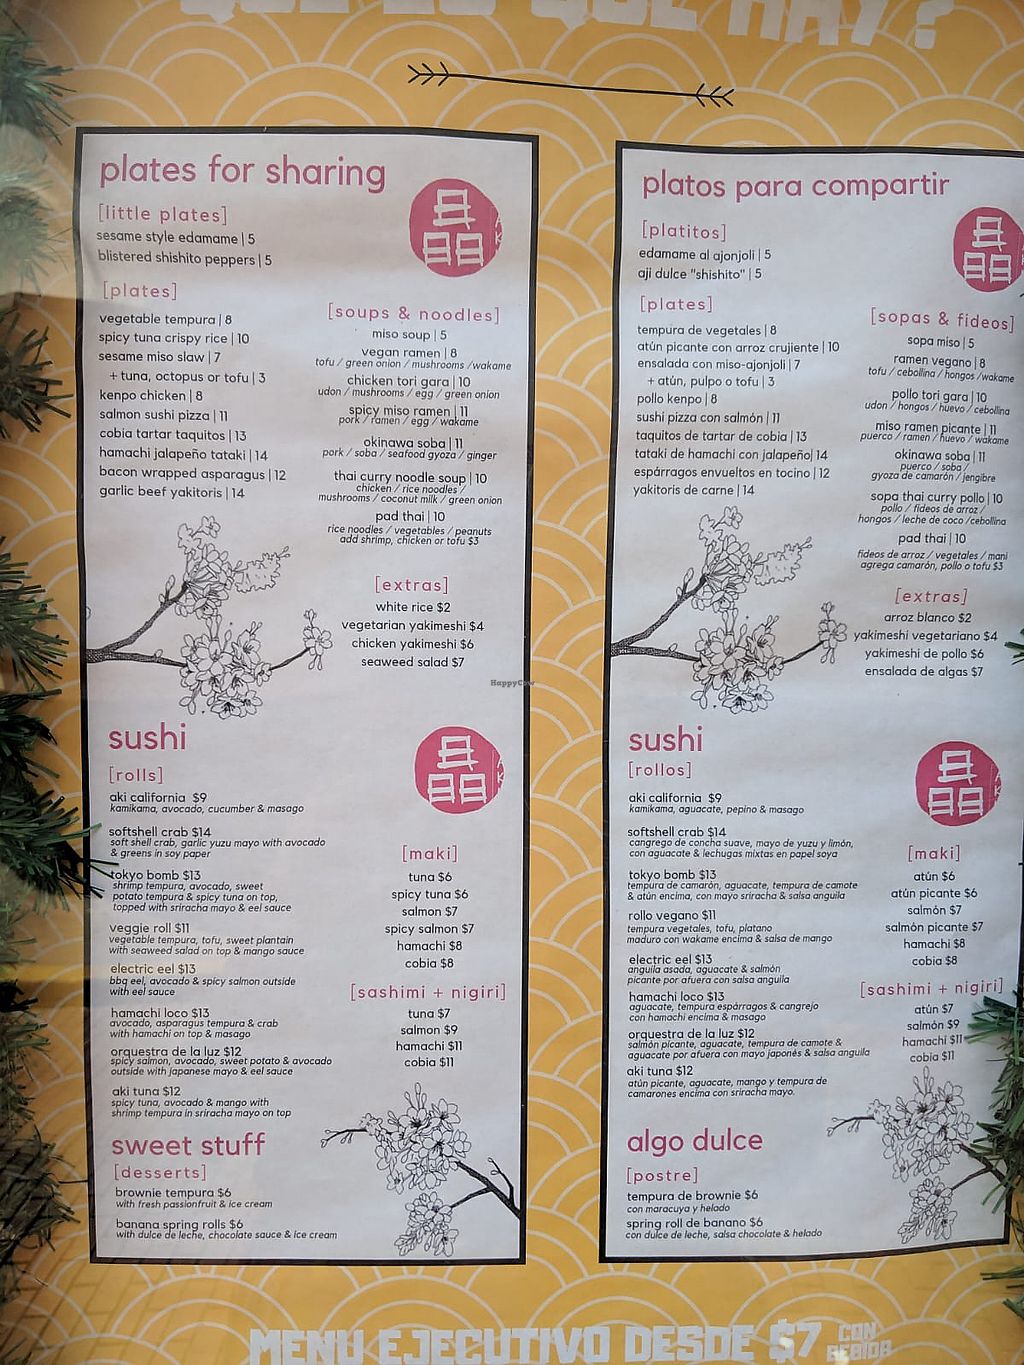 QUE ES QUE HAY?
plates for sharing
[little plates]
sesame style edamame | 5
blistered shishito peppers | 5
[plates]
vegetable tempura | 8
spicy tuna crispy rice | 10
sesame miso slaw | 7
+ tuna, octopus or tofu | 3
kenpo chicken | 8
salmon sushi pizza | 11
cobia tartar taquitos | 13
hamachi jalapeño tataki | 14
bacon wrapped asparagus | 12
garlic beef yakitoris | 14
[soups & noodles]
miso soup | 5
vegan ramen | 8
tofu / green onion / mushrooms /wakame
chicken tori gara | 10
udon / mushrooms / egg / green onion
spicy miso ramen | 11
pork / ramen / egg / wakame
okinawa soba | 11
pork / soba / seafood gyoza / ginger
thai curry noodle soup | 10
chicken / rice noodles /
mushrooms / coconut milk / green onion
pad thai | 10
rice noodles / vegetables / peanuts
add shrimp, chicken or tofu $3
[extras]
white rice $2
vegetarian yakimeshi $4
chicken yakimeshi $6
seaweed salad $7
HappyCow
sushi
[rolls]
aki california $9
kamikama, avocado, cucumber & masago
softshell crab $14
soft shell crab, garlic yuzu mayo with avocado
& greens in soy paper
tokyo bomb $13
shrimp tempura, avocado, sweet
potato tempura & spicy tuna on top,
topped with sriracha mayo & eel sauce
veggie roll $11
vegetable tempura, tofu, sweet plantain
with seaweed salad on top & mango sauce
electric eel $13
bbq eel, avocado & spicy salmon outside
with eel sauce
hamachi loco $13
avocado, asparagus tempura & crab
with hamachi on top & masago
orquestra de la luz $12
spicy salmon, avocado, sweet potato & avocado
outside with japanese mayo & eel sauce
aki tuna $12
spicy tuna, avocado & mango with
shrimp tempura in sriracha mayo on top
[maki]
tuna $6
spicy tuna $6
salmon $7
spicy salmon $7
hamachi $8
cobia $8
[sashimi + nigiri]
tuna $7
salmon $9
hamachi $11
cobia $11
sweet stuff
[desserts]
brownie tempura $6
with fresh passionfruit & ice cream
banana spring rolls $6
with dulce de leche, chocolate sauce & ice cream
platos para compartir
[platitos]
edamame al ajonjoli | 5
aji dulce "shishito" | 5
[plates]
tempura de vegetales | 8
atún picante con arroz crujiente | 10
ensalada con miso-ajonjoli | 7
+ atún, pulpo o tofu | 3
pollo kenpo | 8
sushi pizza con salmón | 11
taquitos de tartar de cobia | 13
tataki de hamachi con jalapeño| 14
espárragos envueltos en tocino | 12
yakitoris de carne | 14
[sopas & fideos]
sopa miso | 5
ramen vegano | 8
tofu / cebollina / hongos /wakame
pollo tori gara | 10
udon / hongos / huevo / cebollina
miso ramen picante | 11
puerco / ramen / huevo / wakame
okinawa soba | 11
puerco / soba /
gyoza de camarón / jengibre
sopa thai curry pollo | 10
pollo / fideos de arroz /
hongos / leche de coco /cebollina
pad thai | 10
fideos de arroz / vegetales / mani
agrega camarón, pollo o tofu $3
[extras]
arroz blanco $2
yakimeshi vegetariano $4
yakimeshi de pollo $6
ensalada de algas $7
sushi
[rollos]
aki california $9
kamikama, aguacate, pepino & masago
softshell crab $14
cangrego de concha suave, mayo de yuzu y limón,
con aguacate & lechugas mixtas en papel soya
tokyo bomb $13
tempura de camarón, aguacate, tempura de camote
& atún encima, con mayo sriracha & salsa anguila
rollo vegano $11
tempura vegetales, tofu, platano
maduro con wakame encima & salsa de mango
electric eel $13
anguila asada, aguacate & salmón
picante por afuera con salsa anguila
hamachi loco $13
aguacate, tempura espárragos & cangrejo
con hamachi encima & masago
orquestra de la luz $12
salmón picante, aguacate, tempura de camote &
aguacate por afuera con mayo japonés & salsa anguila
aki tuna $12
atún picante, aguacate, mango y tempura de
camarones encima con sriracha mayo.
[maki]
atún $6
atún picante $6
salmón $7
salmón picante $7
hamachi $8
cobia $8
[sashimi + nigiri]
atún $7
salmón $9
hamachi $11
cobia $11
algo dulce
[postre]
tempura de brownie $6
con maracuya y helado
spring roll de banano $6
con dulce de leche, salsa chocolate & helado
MENU EJECUTIVO DESDE $7 CON
BEBIDA